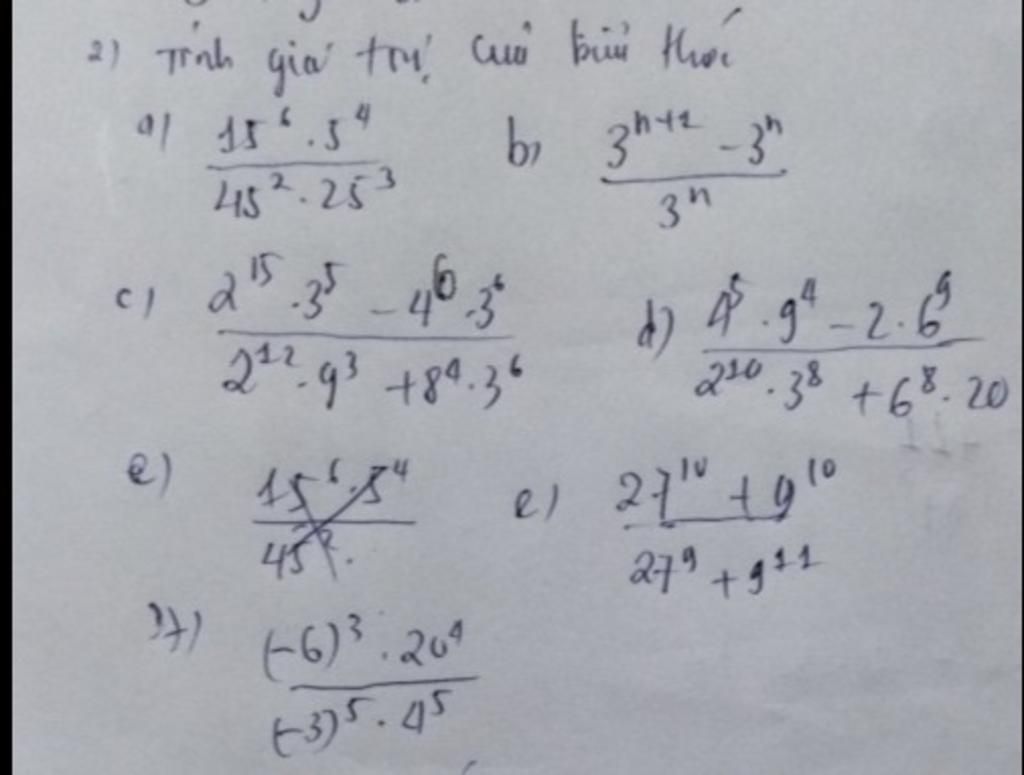 2) Tính giá trị cuả biủ thức
a) \frac{15^6 . 5^4}{45^2 . 25^3} b) \frac{3^{n+1} - 3^n}{3^n}
c) \frac{2^{15} . 3^5 - 4^6 . 3^6}{2^{12} . 9^3 + 8^4 . 3^6} d) \frac{4^5 . 9^4 - 2 . 6^9}{2^{10} . 3^8 + 6^8 . 20}
e) \frac{15^6 . 5^4}{45^2 .} e) \frac{27^{10} + 9^{10}}{27^9 + 9^{11}}
f) \frac{(-6)^3 . 20^4}{(-3)^5 . 4^5}